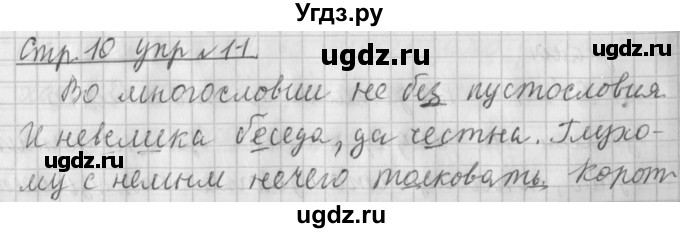 Угдз.ру
Стр. 10 упр №11.
ugdz.ru ugdz.ru
Во многословии не без пустословия
И невелика беседа, да честна. Глухо-
ugdz.ru ugdz.ru
му с немым нечего толковать. Корот
ugdz.ru ugdz.ru